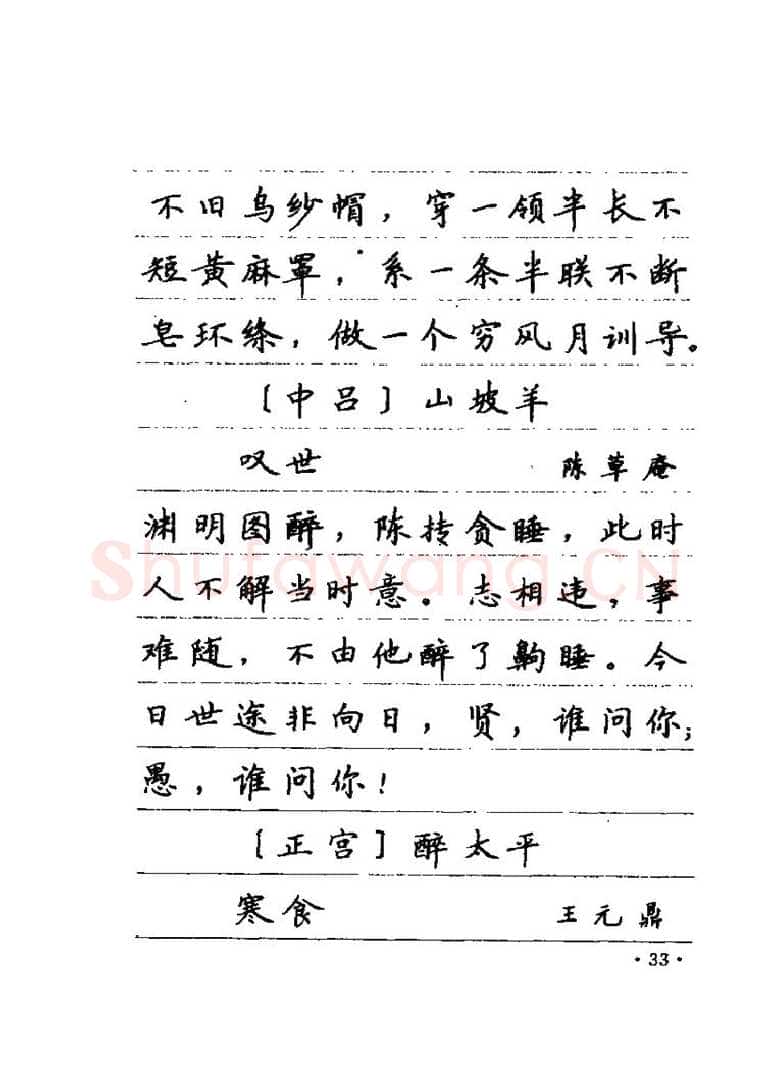 不旧乌纱帽，穿一领半长不
短黄麻罩，系一条半联不断
皂环绦，做一个穷风月训导。
〔中吕〕山坡羊
叹世 陈草庵
渊明图醉，陈抟贪睡，此时
人不解当时意。志相违，事
难随，不由他醉了齁睡。今
日世途非向日，贤，谁问你；
愚，谁问你！
〔正宫〕醉太平
寒食 王元鼎
·33·
Shufawang.CN